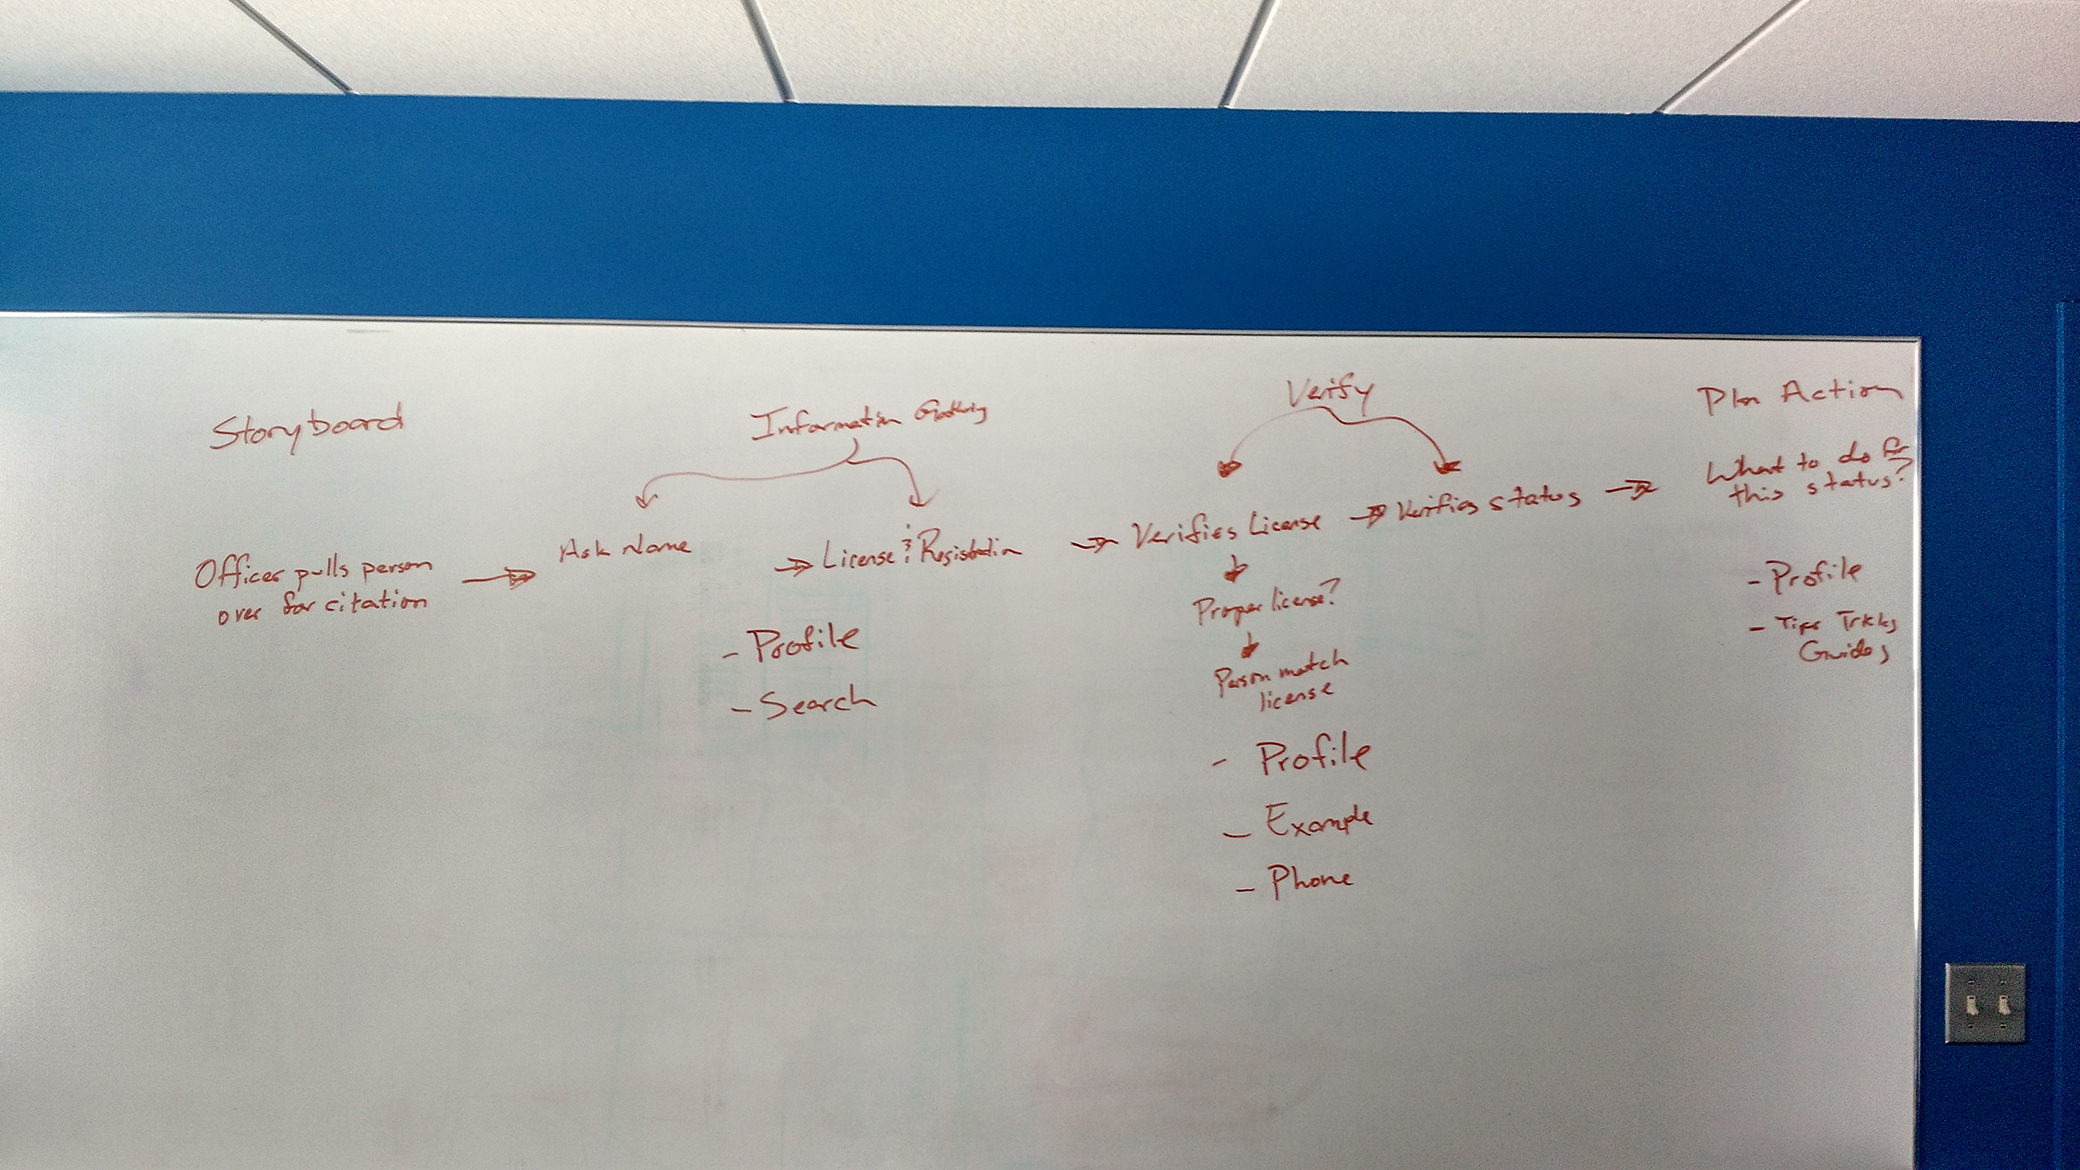 Storyboard
Officer pulls person
over for citation
Information Gathering
Ask Name
License & Registration
- Profile
- Search
Verify
Verifies License
Proper license?
Person match
license
- Profile
- Example
- Phone
Verifies status
Plan Action
What to do for
this status?
- Profile
- Tips Tricks
Guides